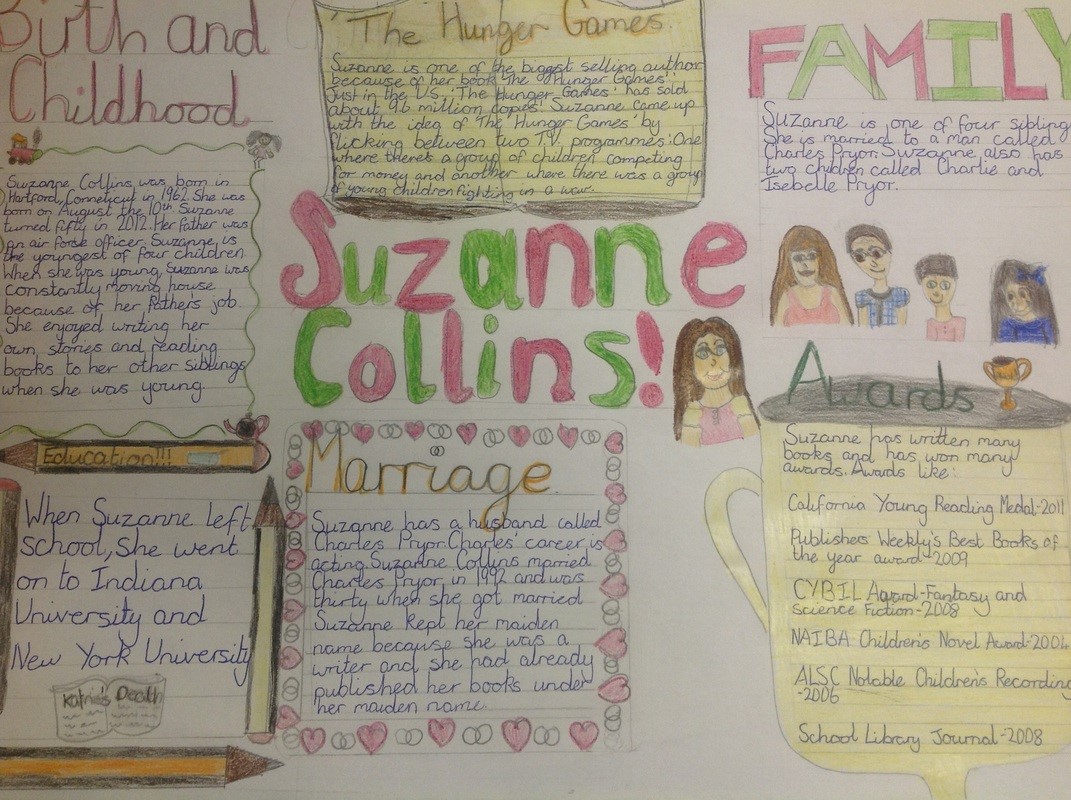 Birth and
Childhood
Suzanne Collins was born in
Hartford, Conneticut in 1962. She was
born on August the 10th. Suzanne
turned fifty in 2012. Her father was
an air forse officer. Suzanne is
the youngest of four children.
When she was young, Suzanne was
constantly moving house
because of her father's job.
She enjoyed writing her
own stories and reading
books to her other siblings
when she was young.
Education!!!
When Suzanne left
school, She went
on to Indiana
University and
New York University
Death
'The Hunger Games.
Suzanne is one of the biggest selling author
because of her book 'The Hunger Games'.
Just in the US, 'The Hunger Games' has sold
about 9.6 million copies! Suzanne came up
with the idea of 'The Hunger Games' by
flicking between two T.V. programmes: One
where there's a group of children competing
for money and another where there was a group
of young children fighting in a war.
Suzanne
Collins!
Marriage
Suzanne has a husband called
Charles Pryor. Charles' career is
acting. Suzanne Collins married
Charles Pryor in 1992 and was
thirty when she got married
Suzanne kept her maiden
name because she was a
writer and she had already
published her books under
her maiden name.
FAMILY
Suzanne is one of four sibling
She is married to a man called
Charles Pryor. Suzanne also has
two children called Charlie and
Isebelle Pryor.
Awards
Suzanne has written many
books and has won many
awards. Awards like:
California Young Reading Medal-2011
Publishers Weekly's Best Books of
the year award-2009
CYBIL Award-Fantasy and
science Fiction-2008
NAIBA Children's Novel Award-2004
ALSC Notable Children's Recording
-2006
School Library Journal-2008